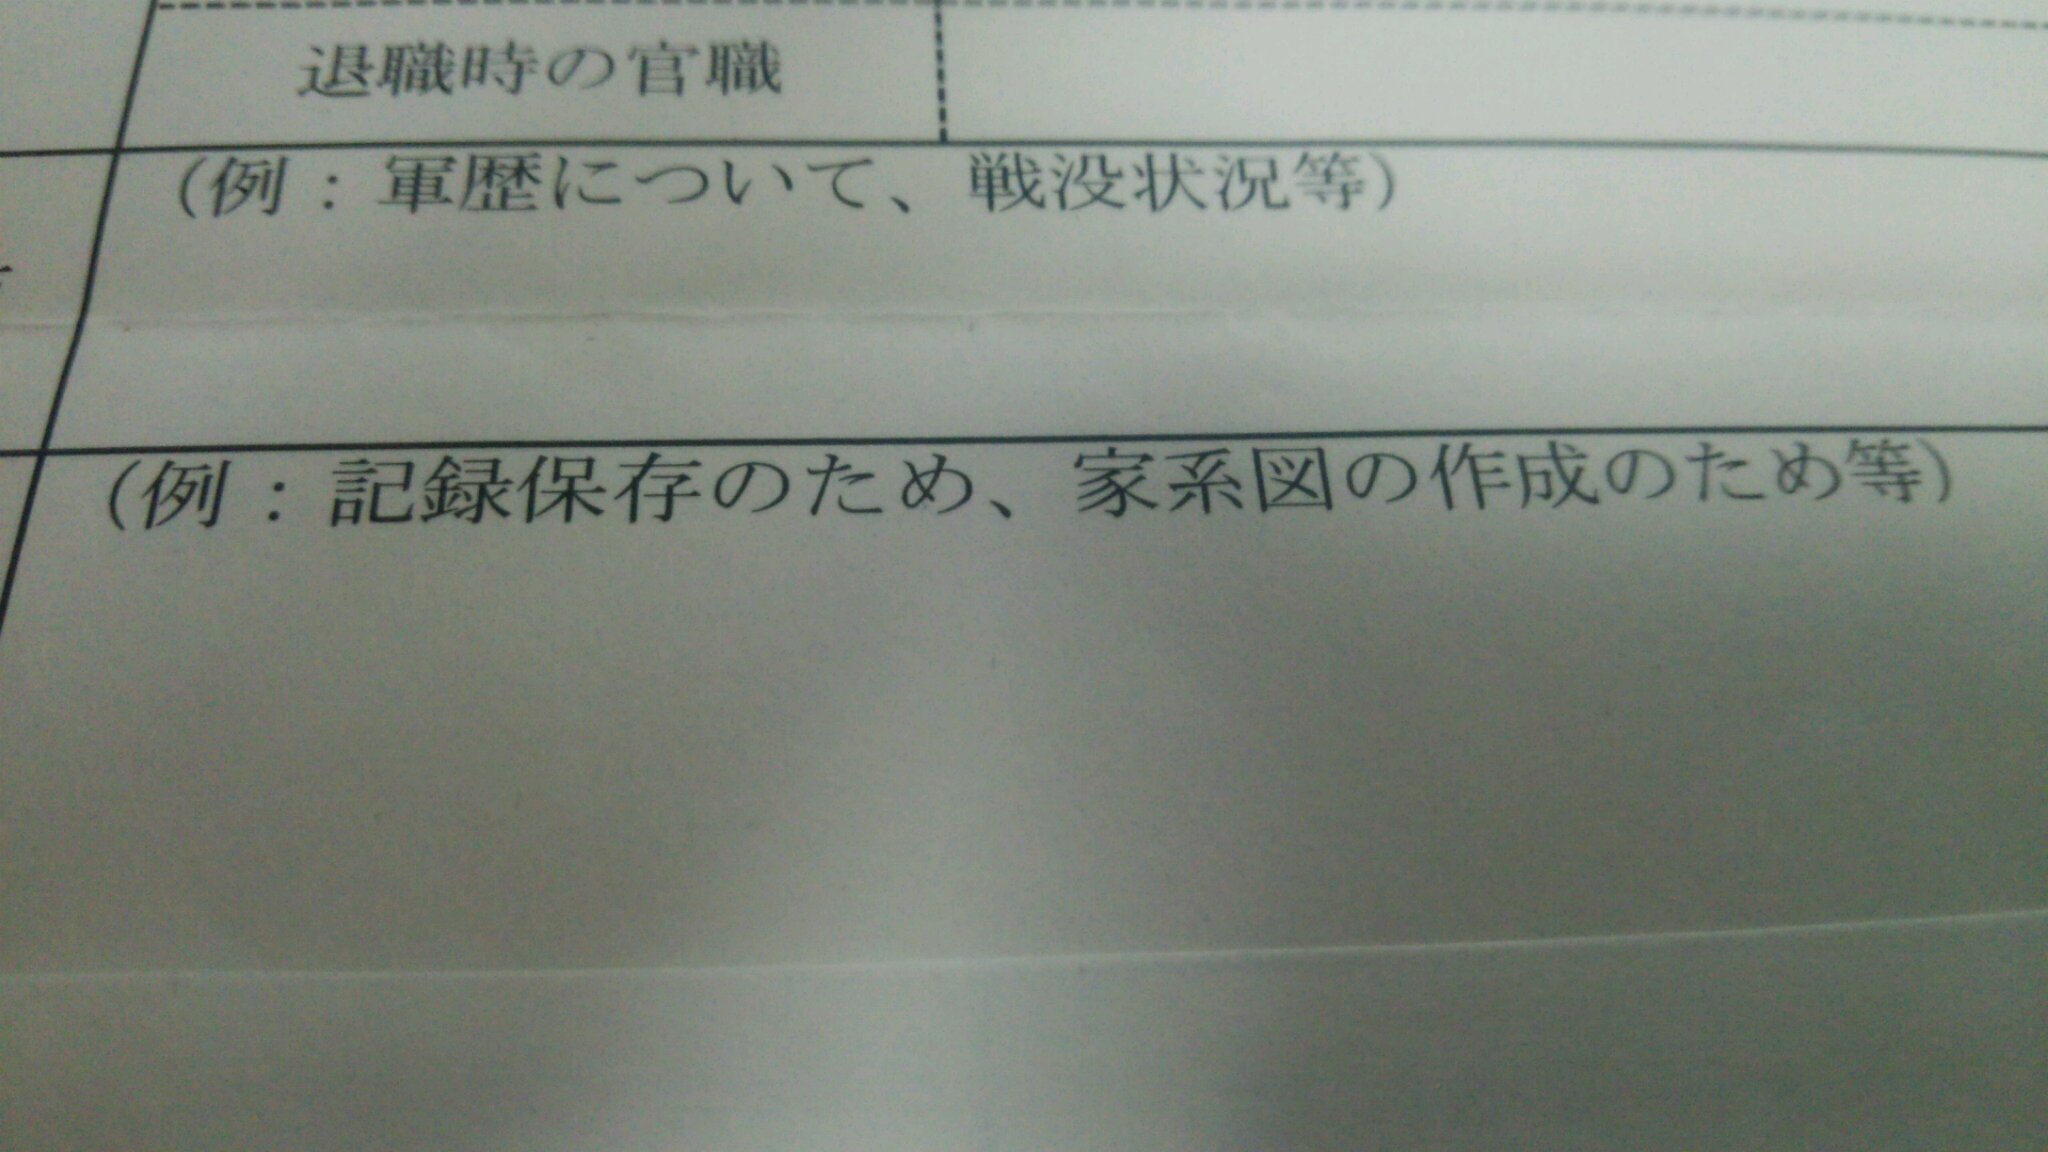 退職時の官職
(例：軍歴について、戦没状況等)
(例：記録保存のため、家系図の作成のため等)